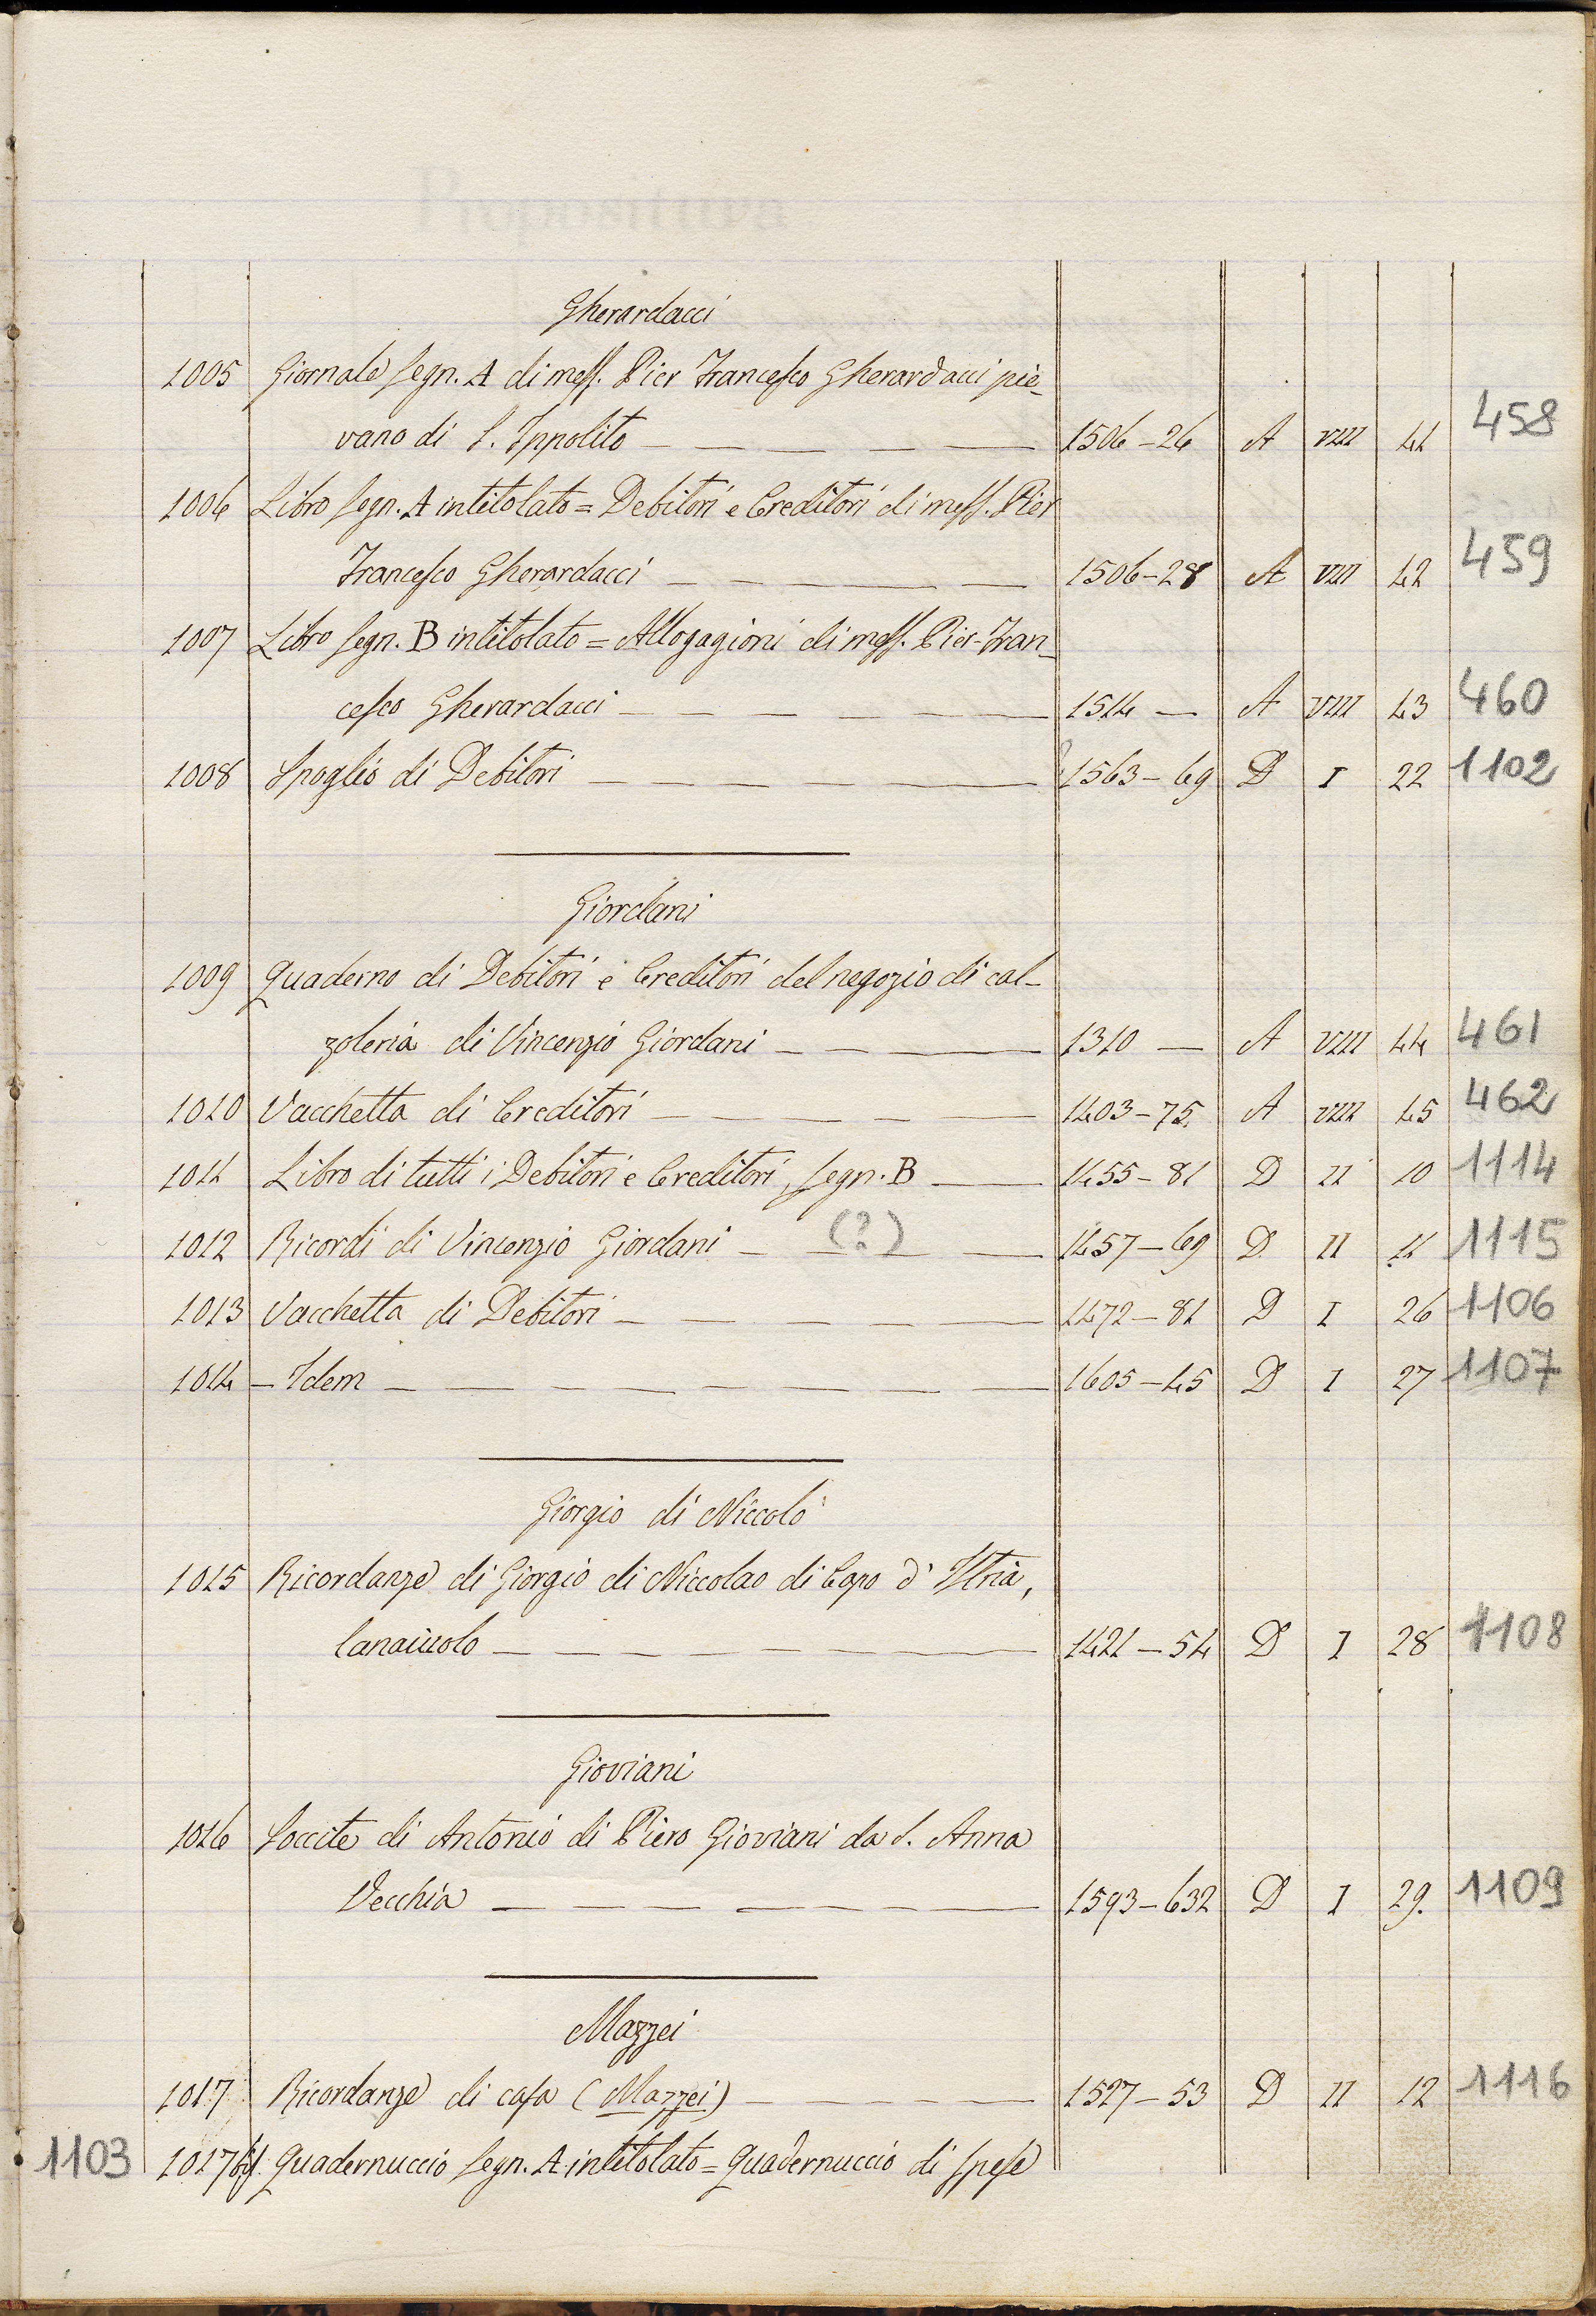 Gherardacci
1005 Giornale segn. A di mess. Pier Francesco Gherardacci pie-
vano di S. Ippolito 1506-26 A VIII 41 458
1006 Libro segn. A intitolato = Debitori e Creditori di mess. Pier
Francesco Gherardacci 1506-28 A VIII 42 459
1007 Libro segn. B intitolato = Allogagioni di mess. Pier-Fran-
cesco Gherardacci 1514 — A VIII 43 460
1008 Spoglio di Debitori 1563-69 D I 22 1102
Giordani
1009 Quaderno di Debitori e Creditori del negozio di cal-
zoleria di Vincenzio Giordani 1310 — A VIII 44 461
1010 Vacchetta di Creditori 1403-75. A VIII 45 462
1011 Libro di tutti i Debitori e Creditori, segn. B 1455-81 D II 10 1114
1012 Ricordi di Vincenzio Giordani (?) 1457-69 D II 11 1115
1013 Vacchetta di Debitori 1472-81 D I 26 1106
1014 - Idem 1605-45 D I 27 1107
Giorgio di Niccolò
1015 Ricordanze di Giorgio di Niccolao di Capo d' Istria,
lanaiuolo 1421-54 D I 28 1108
Gioviani
1016 Soccite di Antonio di Piero Gioviani da S. Anna
Vecchia 1593-632 D I 29. 1109
Mazzei
1017 Ricordanze di casa (Mazzei) 1527-53 D II 12 1116
1103 1017 bis. Quadernuccio segn. A intitolato = Quadernuccio di spese